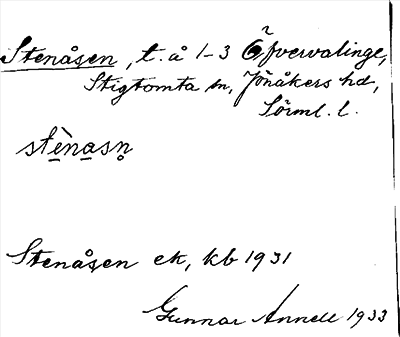 Stenåsen, t. å 1-3 Öfvervalinge,
Stigtomta sn, Jönåkers hd,
Sörml. l.
stènasn̥
Stenåsen ek, kb 1931
Gunnar Annell 1933